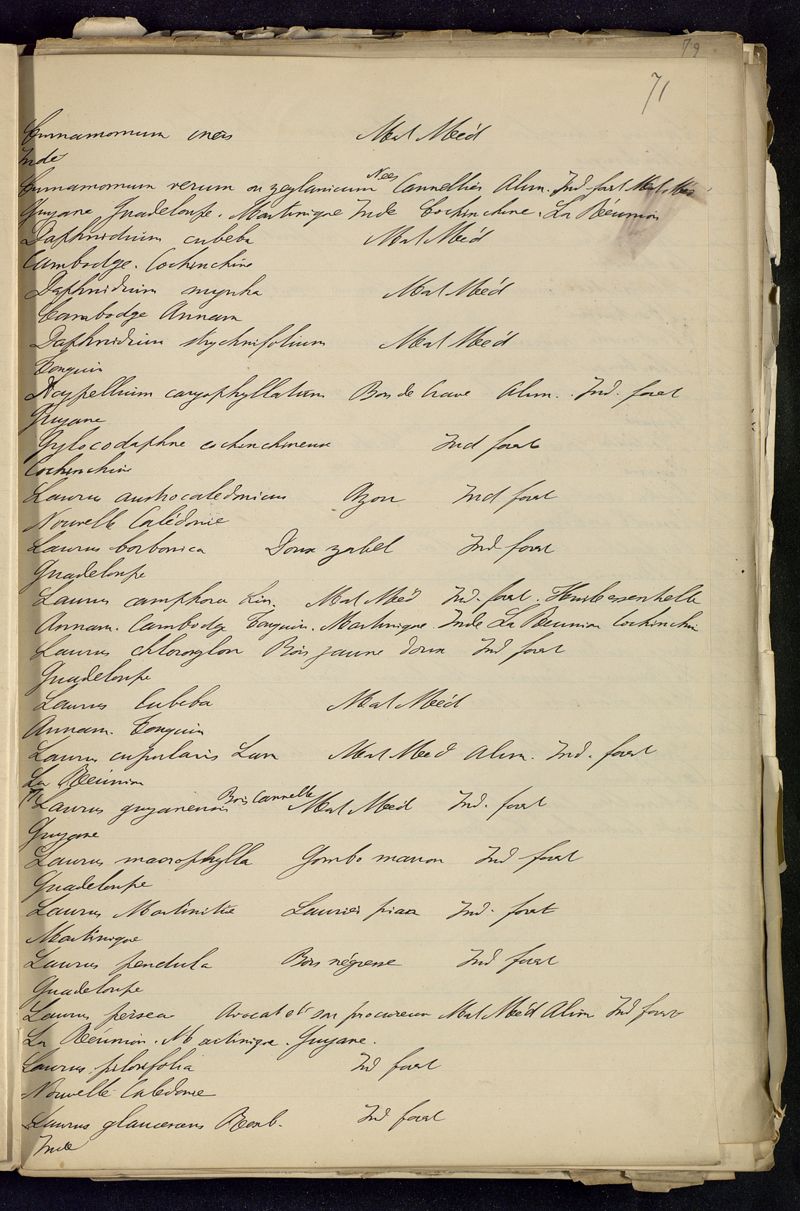 79
71
Cinnamomum iners Mat Méd
Inde
Cinnamomum verum ou zeylanicum Nees Cannellier Alim. Ind. forest Mat Méd
Guyane Guadeloupe. Martinique Inde Cochinchine. La Réunion
Daphnidium cubeba Mat Méd
Cambodge. Cochinchine
Daphnidium myrrha Mat Méd
Cambodge Annam
Daphnidium strychnifolium Mat Méd
Tonquin
Dicypellium caryophyllatum Bois de Crave Alim. Ind. forest
Guyane
Gylocodaphne cochinchinensis Ind forest
Cochinchine
Laurus austrocaledonicus Azou Ind forest
Nouvelle Calédonie
Laurus borbonica Doux zabel Ind forest
Guadeloupe
Laurus camphora Lin. Mat Méd Ind. forest. Huile essentielle
Annam. Cambodge Tonquin. Martinique Inde La Réunion Cochinchin
Laurus chloroxylon Bois jaune doux Ind forest
Guadeloupe
Laurus Cubeba Mat Méd
Annam. Tonquin
Laurus cupularis Lam Mat Méd Alim. Ind. forest
La Réunion
Laurus guyanensis Bois Cannelle Mat Méd Ind. forest
Guyane
Laurus macrophylla Gombo marron Ind forest
Guadeloupe
Laurus Martinitia Laurier piaa Ind. forest
Martinique
Laurus pendula Bois négresse Ind forest
Guadeloupe
Laurus persea Avocat et son procureur Mat Méd Alim Ind forest
La Réunion. Martinique. Guyane.
Laurus pilosifolia Ind forest
Nouvelle Calédonie
Laurus glaucescens Roxb. Ind forest
Inde